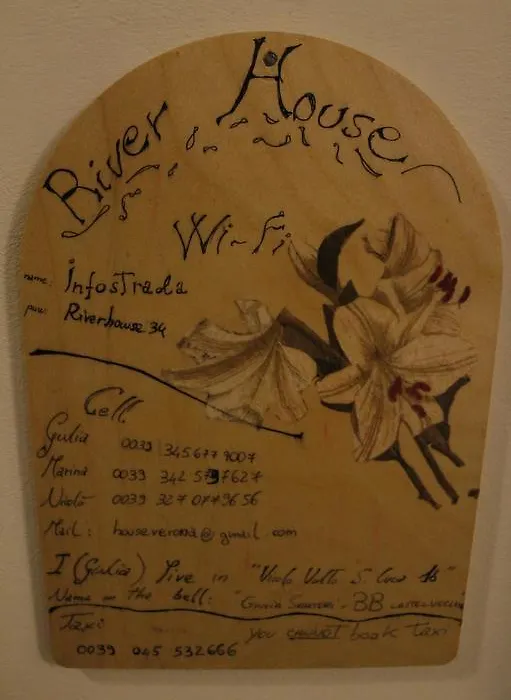 River House
Wi-Fi
name: Infostrada
psw: Riverhouse34
Cell
Giulia 0039 345 677 9007
Marina 0039 342 57 7627
Nicolò 0039 327 0779656
Mail: houseverona@gmail.com
I (Giulia) live in "Vicolo Volto S. Luca 16"
Name on the bell: BB
Taxi you CANNOT book taxi
0039 045 532666